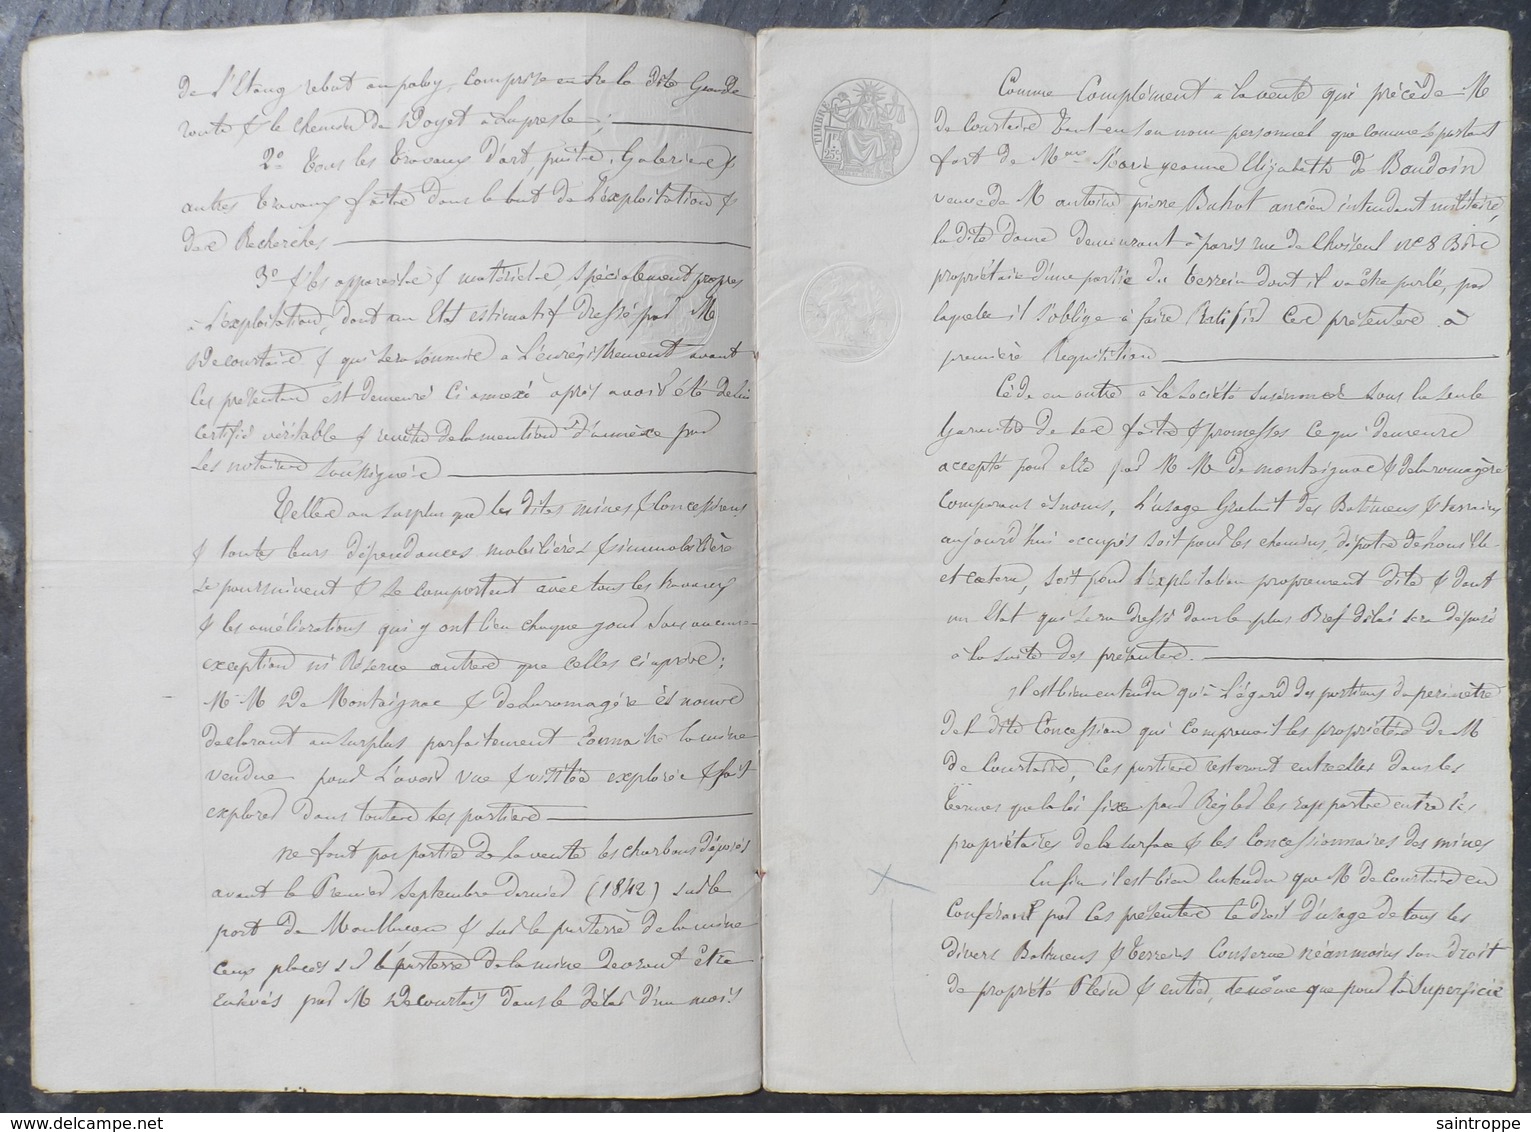 de l'Etang comprise entre la dite Grande
route & le chemin de Doyet à Lapresle;
2º Tous les travaux d'art, puits, Galeries &
autres travaux faits dans le but de l'exploitation &
des Recherches
3º & les appareils & matériels, spécialement propres
à l'exploitation, dont un Etat estimatif dressé par M
Decourtais & qui sera soumis à l'enregistrement avant
Ces présentes est demeuré Ci annexé après avoir été de lui
certifié véritable & revêtu de la mention d'annexe par
Les notaires soussignés
Telles au surplus que les dites mines & Concessions
& toutes leurs dépendances mobilières & immobilières
se poursuivent & se comportent avec tous les travaux
& les améliorations qui y ont lieu chaque jour sans aucune
exception ni Réserve autres que celles ci après;
M. M De Montaignac & de Laromagère ès noms
déclarant au surplus parfaitement Connaitre la mine
vendue pour l'avoir vue & visitée explorée & fait
explorer dans toutes ses parties
ne font pas partie de la vente les charbons déposés
avant le Premier septembre dernier (1842) sur le
port de Montluçon & sur le parterre de la mine
ceux placés sur le parterre de la mine devront être
enlevés par M Decourtais dans le délai d'un mois
TIMBRE
1F.
25c
Comme Complément à la vente qui précède M
de Courtais tant en son nom personnel que comme se portant
fort de Mme Marie jeanne Elizabeth de Baudoin
veuve de M antoine pierre Buhot ancien intendant militaire,
la dite dame demeurant à paris rue de Choiseul nº 8 Bis
propriétaire d'une partie du terrein dont il va être parlé, par
laquelle il s'oblige à faire Ratifier Ces présentes à
première Requisition
Cède en outre à la Société susénoncée sous la seule
Garantie de ses faits & promesses Ce qui demeure
accepté pour elle par M M de montaignac & de Laromagère
Comparans ès noms, l'usage Gratuit des Batimens & terrains
aujourd'hui occupés soit pour les chemins, dépôts de houille
et cætera, soit pour l'Exploitation proprement dite & dont
un Etat qui sera dressé dans le plus Bref délai sera déposé
à la suite des présentes.
il est bien entendu qu'à l'égard des portions du périmètre
de la dite Concession qui Comprennent les propriétés de M
de Courtais, Ces parties resteront entr'elles dans les
termes que la loi fixe pour Régler les rapports entre les
propriétaires de la surface & les Concessionnaires des mines
Enfin il est bien Entendu que M de Courtais en
Conférant par Ces présentes le droit d'usage de tous les
divers Batimens & terreins Conserve néanmoins son droit
de propriété Plein & entier, de même que pour la Superficie
saintroppe